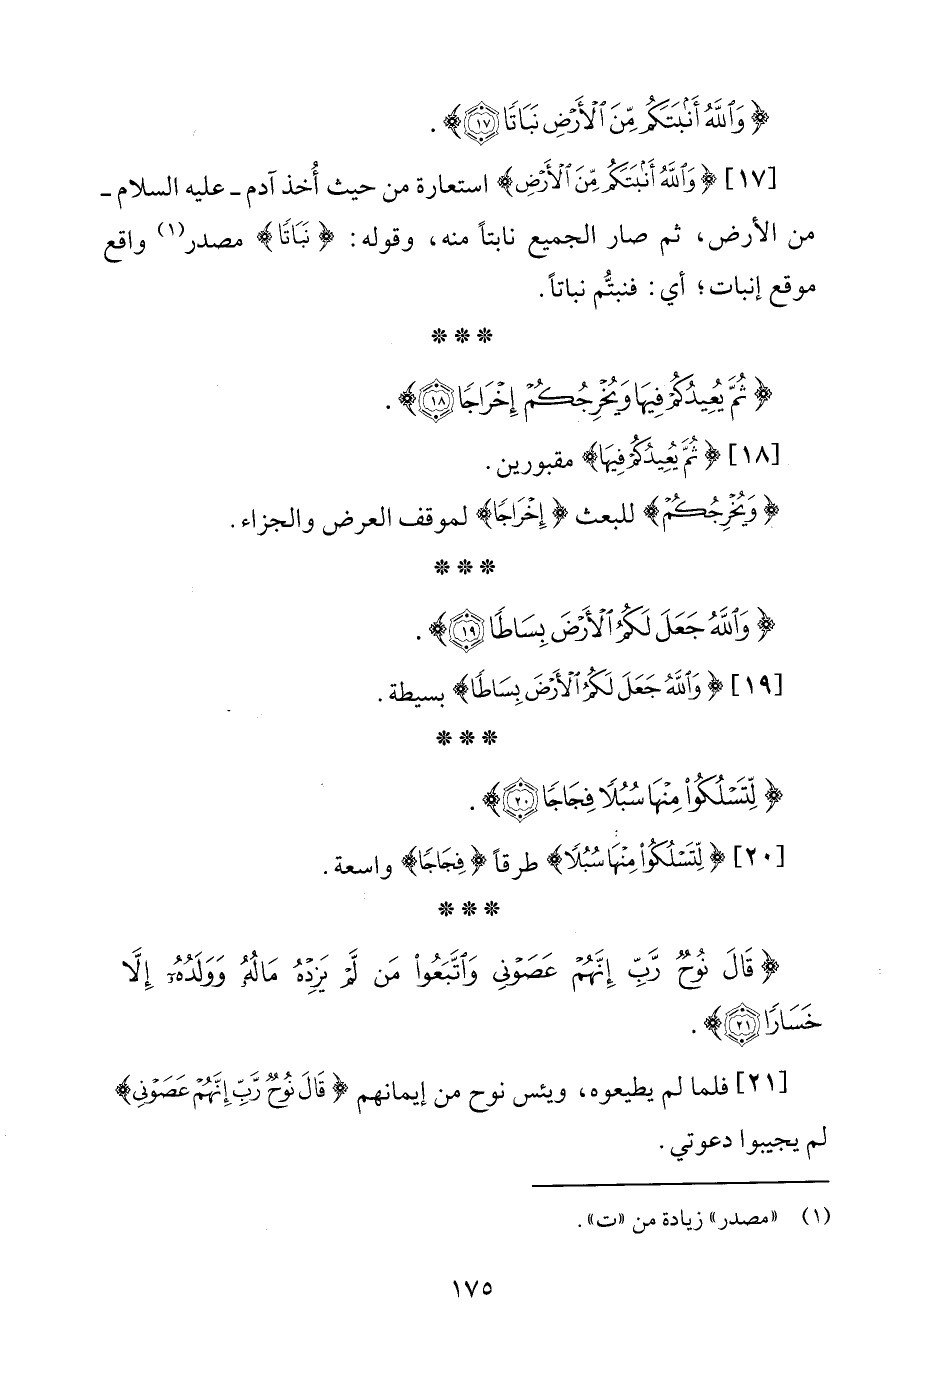 ﴿ وَٱللَّهُ أَنۢبَتَكُم مِّنَ ٱلْأَرْضِ نَبَاتًا ﴿١٧﴾ ﴾ .
[١٧] ﴿ وَٱللَّهُ أَنۢبَتَكُم مِّنَ ٱلْأَرْضِ ﴾ استعارة من حيث أُخذ آدم ـ عليه السلام ـ
من الأرض، ثم صار الجميع نابتاً منه، وقوله: ﴿ نَبَاتًا ﴾ مصدر(١) واقع
موقع إنبات؛ أي: فنبتُّم نباتاً.
* * *
﴿ ثُمَّ يُعِيدُكُمْ فِيهَا وَيُخْرِجُكُمْ إِخْرَاجًا ﴿١٨﴾ ﴾ .
[١٨] ﴿ ثُمَّ يُعِيدُكُمْ فِيهَا ﴾ مقبورين.
﴿ وَيُخْرِجُكُمْ ﴾ للبعث ﴿ إِخْرَاجًا ﴾ لموقف العرض والجزاء.
* * *
﴿ وَٱللَّهُ جَعَلَ لَكُمُ ٱلْأَرْضَ بِسَاطًا ﴿١٩﴾ ﴾ .
[١٩] ﴿ وَٱللَّهُ جَعَلَ لَكُمُ ٱلْأَرْضَ بِسَاطًا ﴾ بسيطة.
* * *
﴿ لِّتَسْلُكُوا۟ مِنْهَا سُبُلًا فِجَاجًا ﴿٢٠﴾ ﴾ .
[٢٠] ﴿ لِّتَسْلُكُوا۟ مِنْهَا سُبُلًا ﴾ طرقاً ﴿ فِجَاجًا ﴾ واسعة.
* * *
﴿ قَالَ نُوحٌ رَّبِّ إِنَّهُمْ عَصَوْنِى وَٱتَّبَعُوا۟ مَن لَّمْ يَزِدْهُ مَالُهُۥ وَوَلَدُهُۥٓ إِلَّا
خَسَارًا ﴿٢١﴾ ﴾ .
[٢١] فلما لم يطيعوه، ويئس نوح من إيمانهم ﴿ قَالَ نُوحٌ رَّبِّ إِنَّهُمْ عَصَوْنِى ﴾
لم يجيبوا دعوتي.
(١) «مصدر» زيادة من «ت».
١٧٥